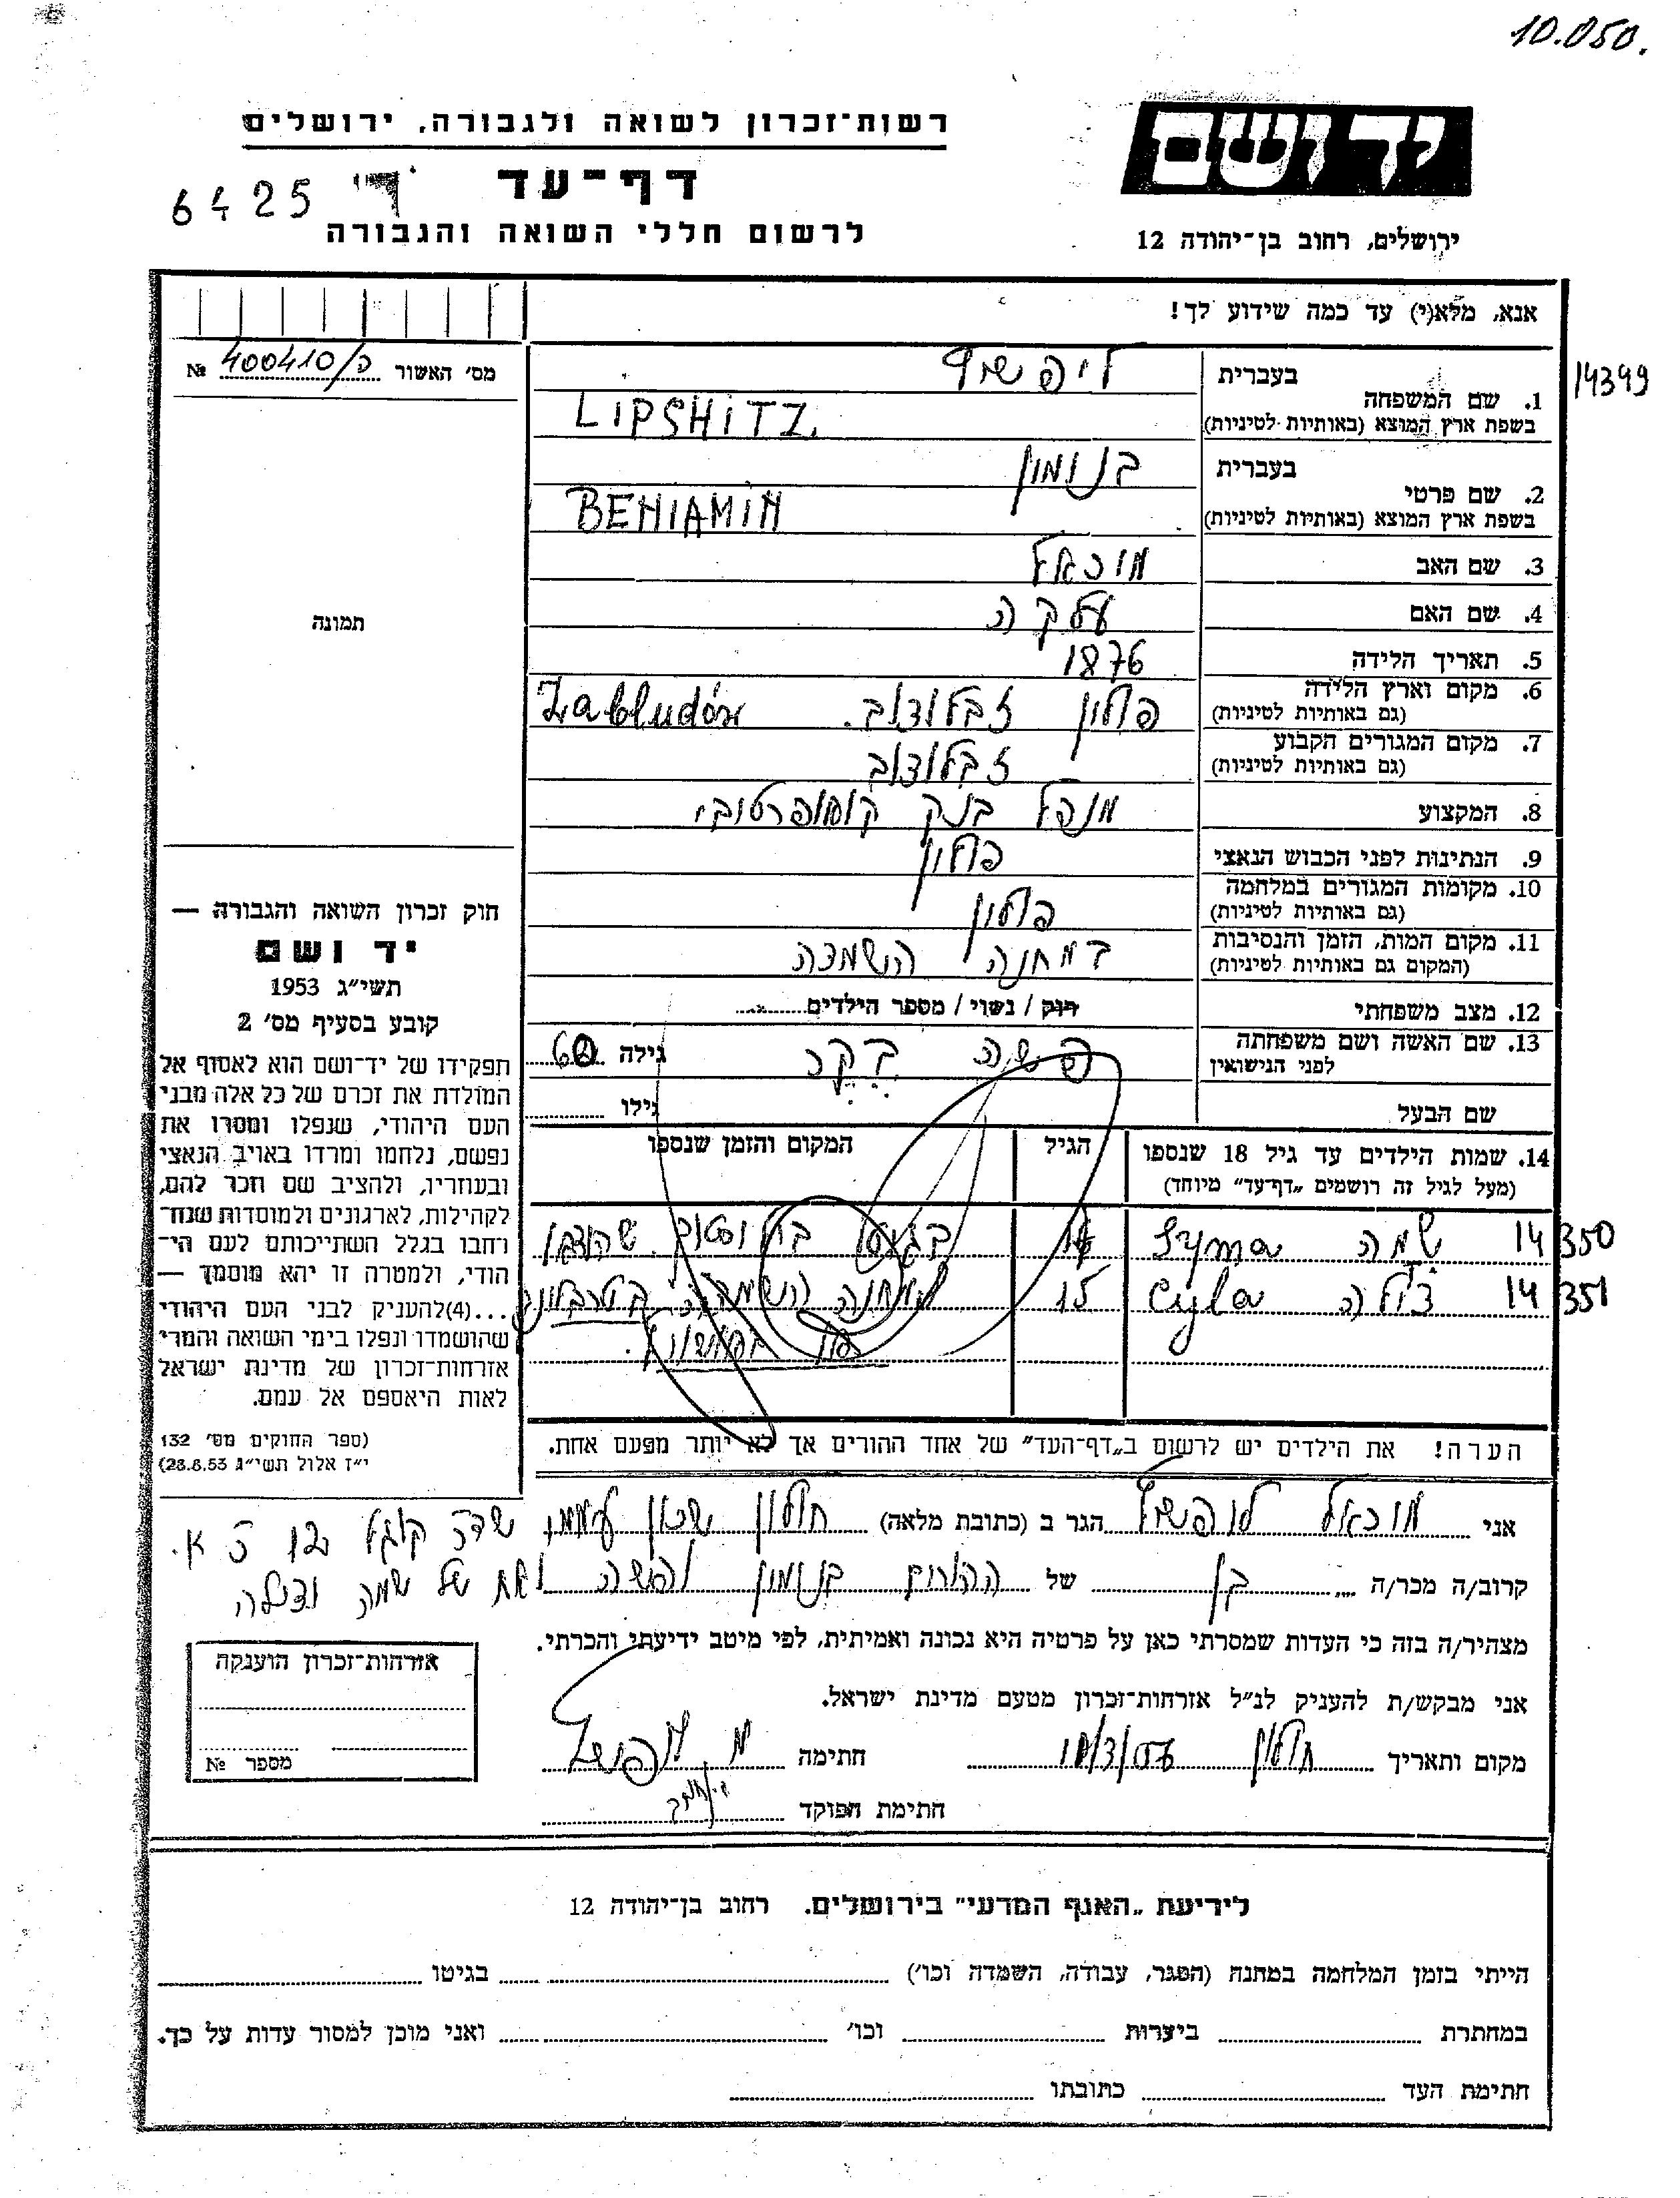 10.050.
רשות־זכרון לשואה ולגבורה, ירושלים
יד ושם
דף־עד
6425
לרשום חללי השואה והגבורה
ירושלים, רחוב בן־יהודה 12
אנא, מלא(י) עד כמה שידוע לך!
מס׳ האשור 400410/כ №
14399
1. שם המשפחה בעברית ליפשיץ
בשפת ארץ המוצא (באותיות לטיניות) LIPSHITZ
2. שם פרטי בעברית בנימין
בשפת ארץ המוצא (באותיות לטיניות) BENIAMIN
3. שם האב מיכאל
4. שם האם
5. תאריך הלידה 1876
6. מקום וארץ הלידה פולין זבלודוב. Zabludów
(גם באותיות לטיניות)
7. מקום המגורים הקבוע זבלודוב
(גם באותיות לטיניות)
8. המקצוע מנהל בנק קואופרטובי
9. הנתינות לפני הכבוש הנאצי פולין
10. מקומות המגורים במלחמה פולין
(גם באותיות לטיניות)
11. מקום המות, הזמן והנסיבות במחנה השמדה
(המקום גם באותיות לטיניות)
12. מצב משפחתי רווק / נשוי / מספר הילדים
13. שם האשה ושם משפחתה גילה 60
לפני הנישואין
שם הבעל גילו
14. שמות הילדים עד גיל 18 שנספו הגיל המקום והזמן שנספו
(מעל לגיל זה רושמים „דף־עד” מיוחד)
14350 שמה Syma 14
14351 צילה Cyla 15
הערה! את הילדים יש לרשום ב„דף־העד” של אחד ההורים אך לא יותר מפעם אחת.
תמונה
חוק זכרון השואה והגבורה —
יד ושם
תשי״ג 1953
קובע בסעיף מס׳ 2
תפקידו של יד־ושם הוא לאסוף אל
המולדת את זכרם של כל אלה מבני
העם היהודי, שנפלו ומסרו את
נפשם, נלחמו ומרדו באויב הנאצי
ובעוזריו, ולהציב שם וזכר להם,
לקהילות, לארגונים ולמוסדות שנח־
רחבו בגלל השתייכותם לעם הי־
הודי, ולמטרה זו יהא מוסמך —
...(4)להעניק לבני העם היהודי
שהושמדו ונפלו בימי השואה והמרי
אזרחות־זכרון של מדינת ישראל
לאות היאספם אל עמם.
(ספר החוקים מס׳ 132
י״ז אלול תשי״ג 28.8.53)
אני מיכאל ליפשיץ הגר ב (כתובת מלאה) חולון שכון עממי
קרוב/ה מכר/ה בן של ההורים בנימין ופשה ואח של שמה וצילה
מצהיר/ה בזה כי העדות שמסרתי כאן על פרטיה היא נכונה ואמיתית, לפי מיטב ידיעתי והכרתי.
אני מבקש/ת להעניק לנ״ל אזרחות־זכרון מטעם מדינת ישראל.
מקום ותאריך חולון חתימה מ. ליפשיץ
חתימת הפוקד
אזרחות־זכרון הוענקה
מספר №
לידיעת „האגף המדעי” בירושלים. רחוב בן־יהודה 12
הייתי בזמן המלחמה במחנה (הסגר, עבודה, השמדה וכו׳) בגיטו
במחתרת ביערות וכו׳ ואני מוכן למסור עדות על כך.
חתימת העד כתובתו